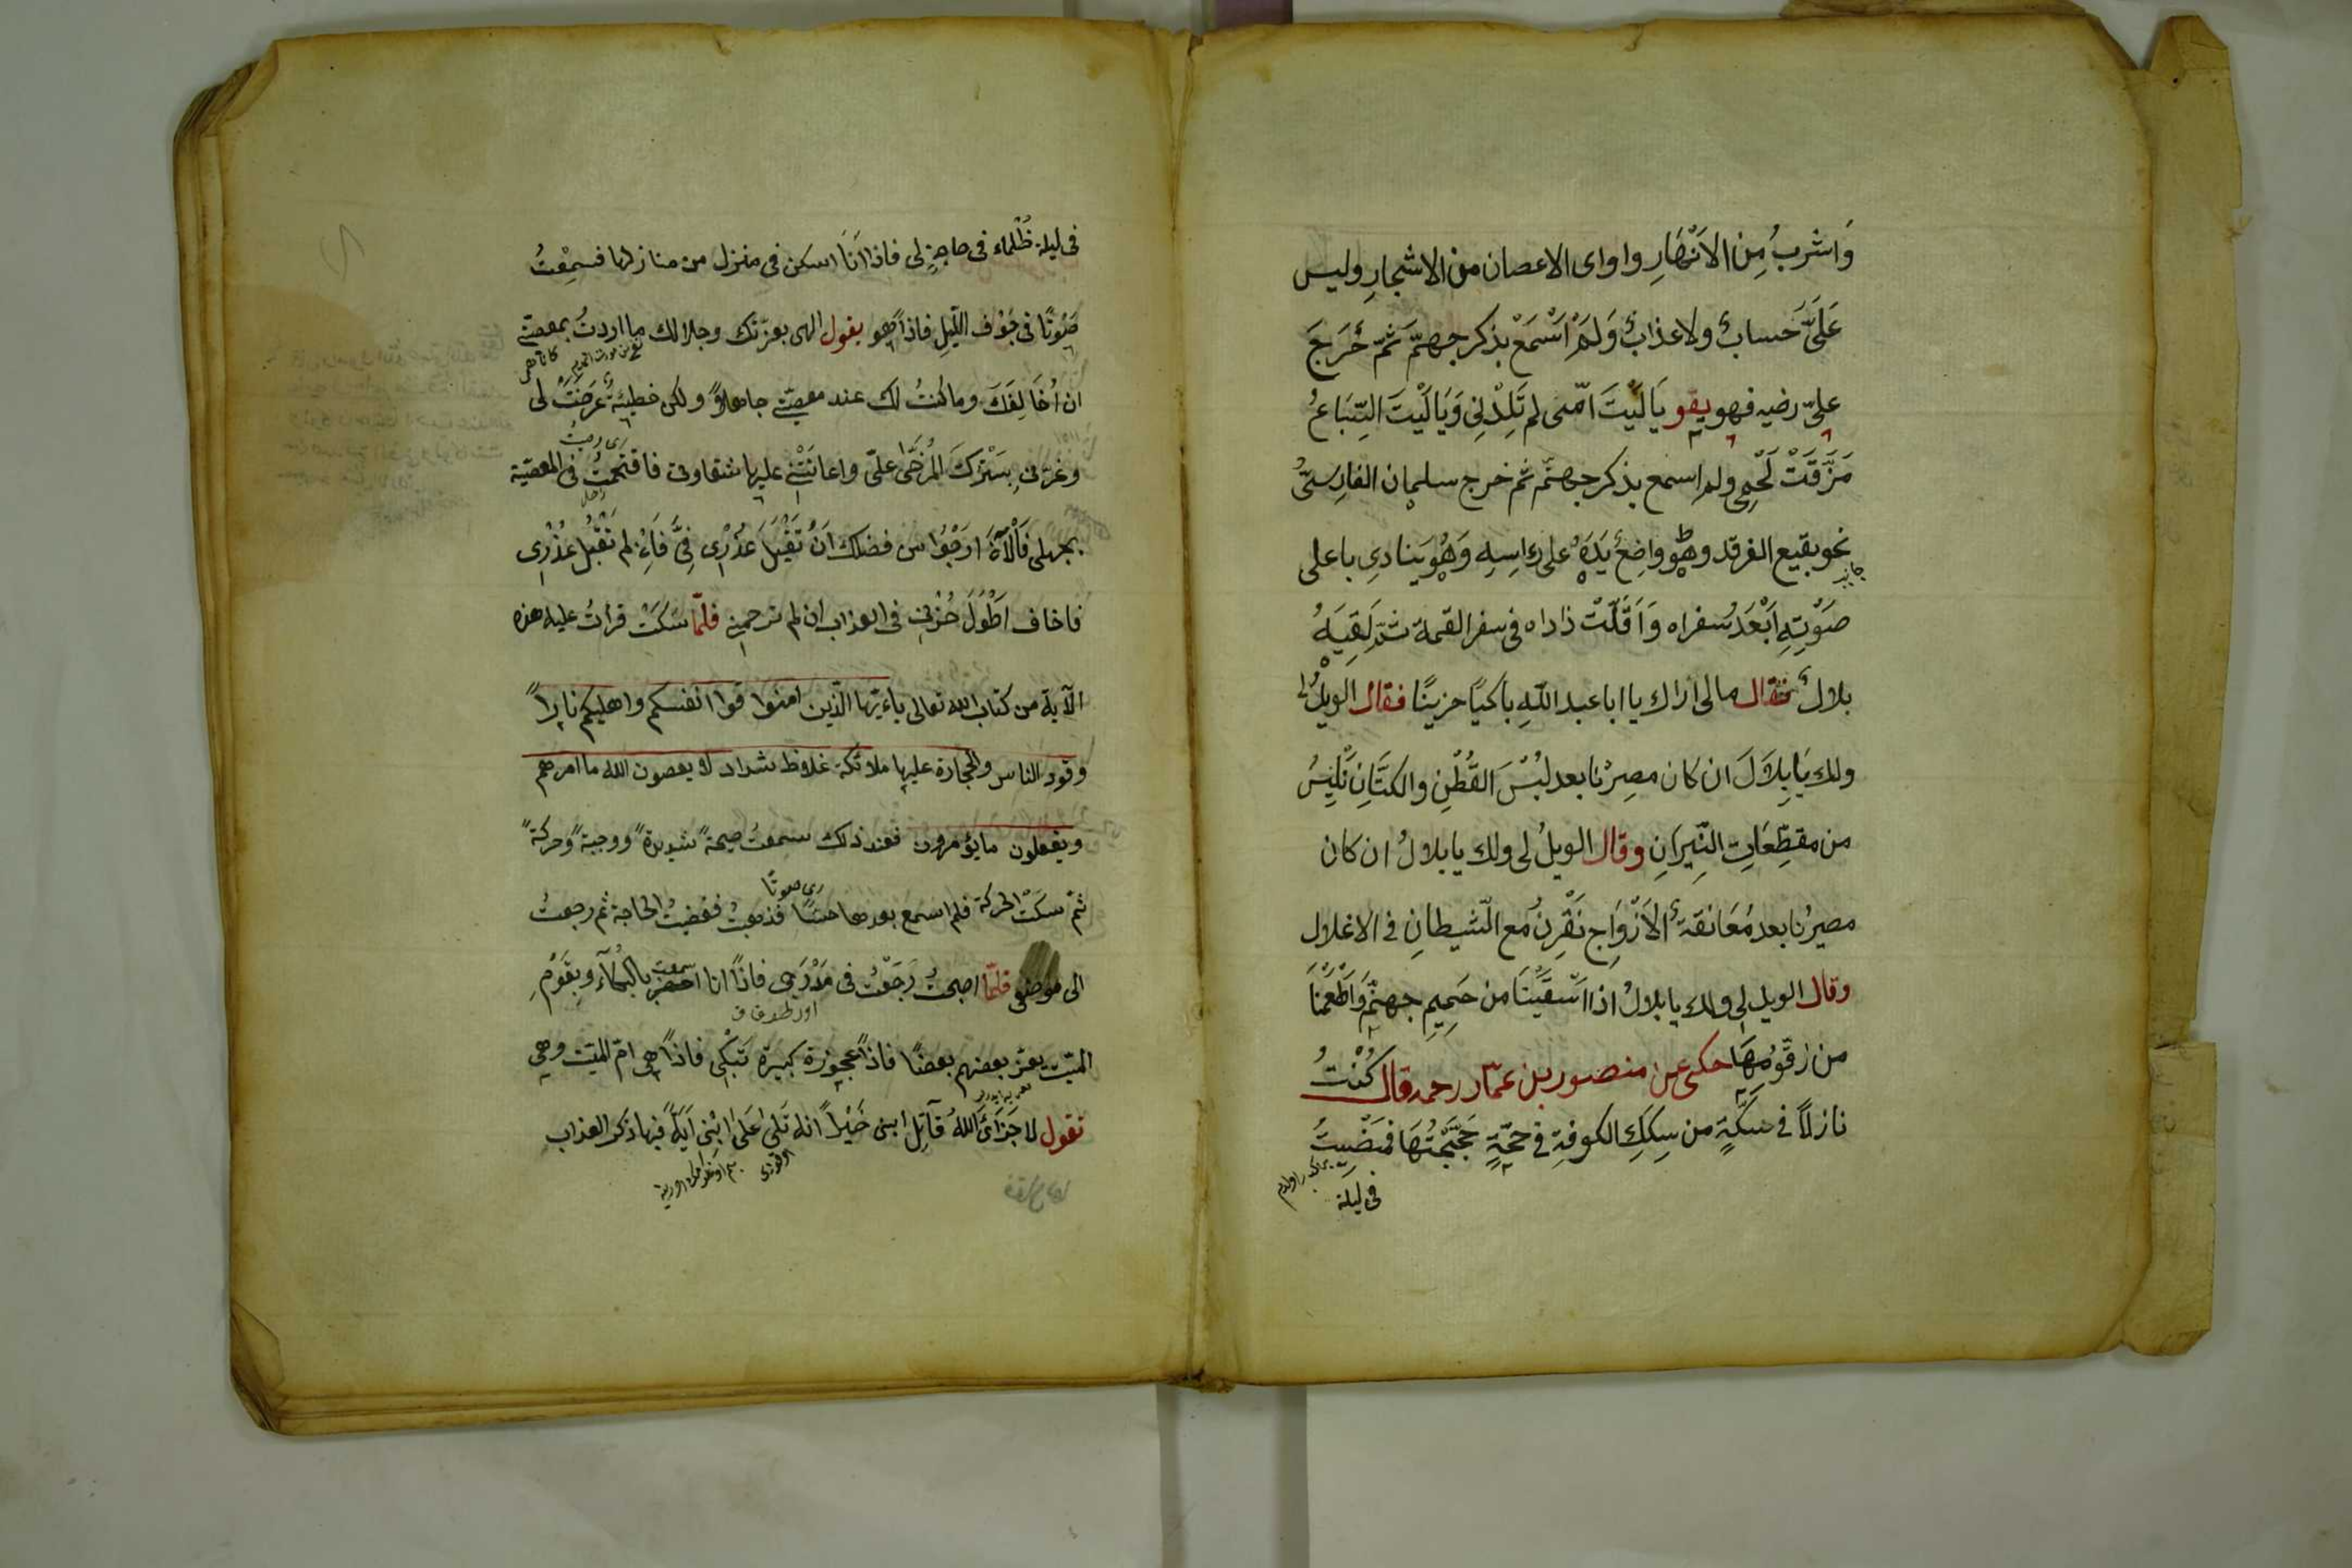 وَاشربُ مِن الاَنْهَارِ واوای الاعصان من الاشجارِ وليس
عَلَیَّ حَسابٌ ولا عذابٌ وَلَمْ اَسْمَعْ بذكر جهنّمَ ثمّ خَرَجَ
علىّ رضيه فهو يقو يَا لَيْتَ امّى لم تَلِدْنِى وَيَا لَيْتَ السِّبَاعُ
مَزَّقَتْ لَحْمِى ولم اسمع بذكر جهنّم ثم خرج سليمان الفارسىُّ
نحو بقيع الغرقد وهو واضعٌ يَدَهُ على رَاسِهِ وَهُو ينادى باعلى
صَوْتِهِ اَبْعَدُ سفراه وَاَقَلَّتْ ذاداه فى سفر القيمة ثمّ لَقِيَهُ
بلالٌ فقال مالى اراك يا ابا عبد اللهِ باكيًا حزينًا فقال الويلُ لى
ولك يَا بِلَالَ ان كان مصيرُنا بعد لُبْسَ القُطْنِ والكتَّانِ نَلْبِسُ
من مقطّعَاتِ النِّيرَانِ وقال الويلُ لى ولك يا بلالُ ان كان
مصيرُنا بعد مُعَانقةِ الاَزْوَاجِ نَقْرِنُ مع الشيطانِ فى الاغلال
وقال الويل لى ولك يا بلالُ اذا اَسْقَيْنَا من حَمِيمِ جهنّم وَاَطْعَمْنَا
من زقّومُهَا حكى عن منصور بن عمّار رحمه قال كُنْتُ
نازلاً فى سَكَّةٍ من سِكَكِ الكوفةِ فى حجّةٍ حَجَّجْتُهَا فمَضَيتُ
فى ليلة
فى ليلة ظُلماء فى حاجةٍ لى فاذا اَنَا اسكن فى منزل من منازلها فسمِعْتُ
صَوْتًا فى جَوْف اللّيلِ فاذًا هو يقول الهى بعزّتك وجلالك ما اردتُ بمعصيتى
ان اُخَالِفَكَ وما كُنتُ لك عند معصيتى جاهلاً ولكن خطيئةٌ عَرَضَتْ لى
وغرّنى سَتْرُكَ المُرخَى علىّ واعانَتْنِى عليها شقاوتى فاقتَحمتُ فى المعصية
بجهلى فَالْآنَ ارَجُوا من فضلك انْ تَقْبَلَ عُذْرِى فِىَّ فَاِنْ لم تَقْبَل عُذْرِى
فاخاف اَطْوُلَ حُزْنِى فى العذاب ان لم ترحمنى فلمّا سَكَتَ قرأتُ عليه هذه
الآية من كتاب الله تعالى ياءيّها الّذين امنوا قوا انفسكم واهليكم نارًا
وقود الناس والحجارة عليها ملائكة غلاظ شداد لا يعصون الله ما امرهم
ويفعلون ما يؤمرون فعند ذلك سمعتُ صيحةً شديدةً ووجبةً وحركةً
ثمّ سكَنَتْ الحركة فلم اسمع بعدها حسًّا فذهبتُ فقضيتُ الحاجة ثم رجعتُ
الى موضعى فلمّا اصبحتُ رَجَعْتُ فى مَدْرَجى فاذًا انا سمعت بالبُكآء وبقَوْمِ
الميّت يعزّ بعضهم بعضًا فاذًا عجوزة كبيرة تَبْكِى فاذًا هى امّ الميّت وهى
تقول لا جَزَاىَ اللهُ قَاتِل ابنى خَيْرًا انه تَلَى عَلَى ابْنِى اَيَةً فيها ذكر العذاب